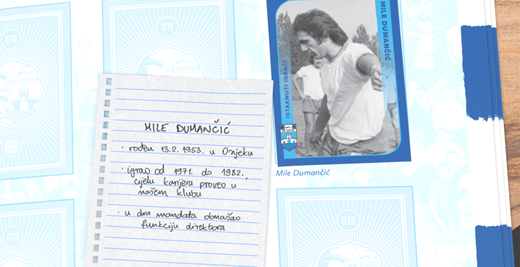 071
MILE DUMANČIĆ
ISTAKNUTI IGRAČI
Mile Dumančić
MILE DUMANČIĆ
• rođen 13.2. 1953. u Osijeku
• igrao od 1971. do 1982.,
cijelu karijeru proveo u
našem klubu
• u dva mandata obnašao
funkciju direktora
075